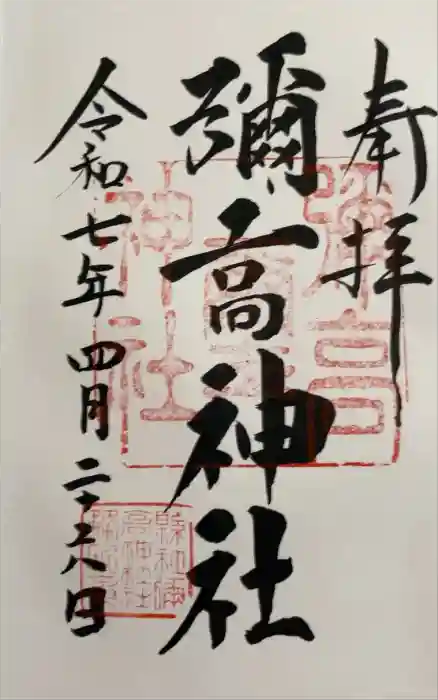 奉拝
彌高神社
令和七年四月二十八日
彌高
神社